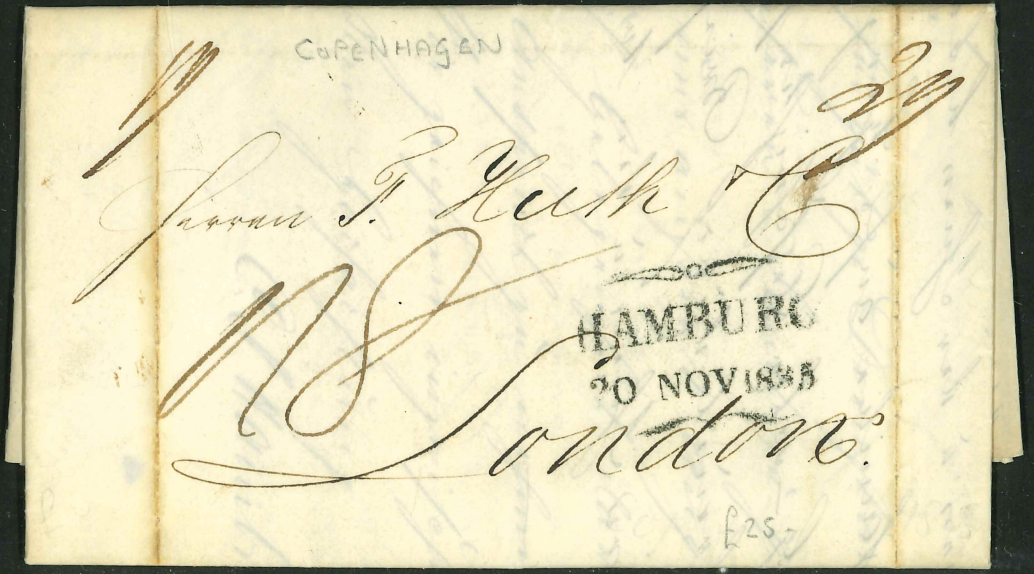 COPENHAGEN
29
Herren F. Huth & Co
18
HAMBURG
20 NOV 1835
London.
£25-